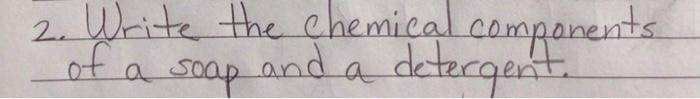 2. Write the chemical components
of a soap and a detergent.